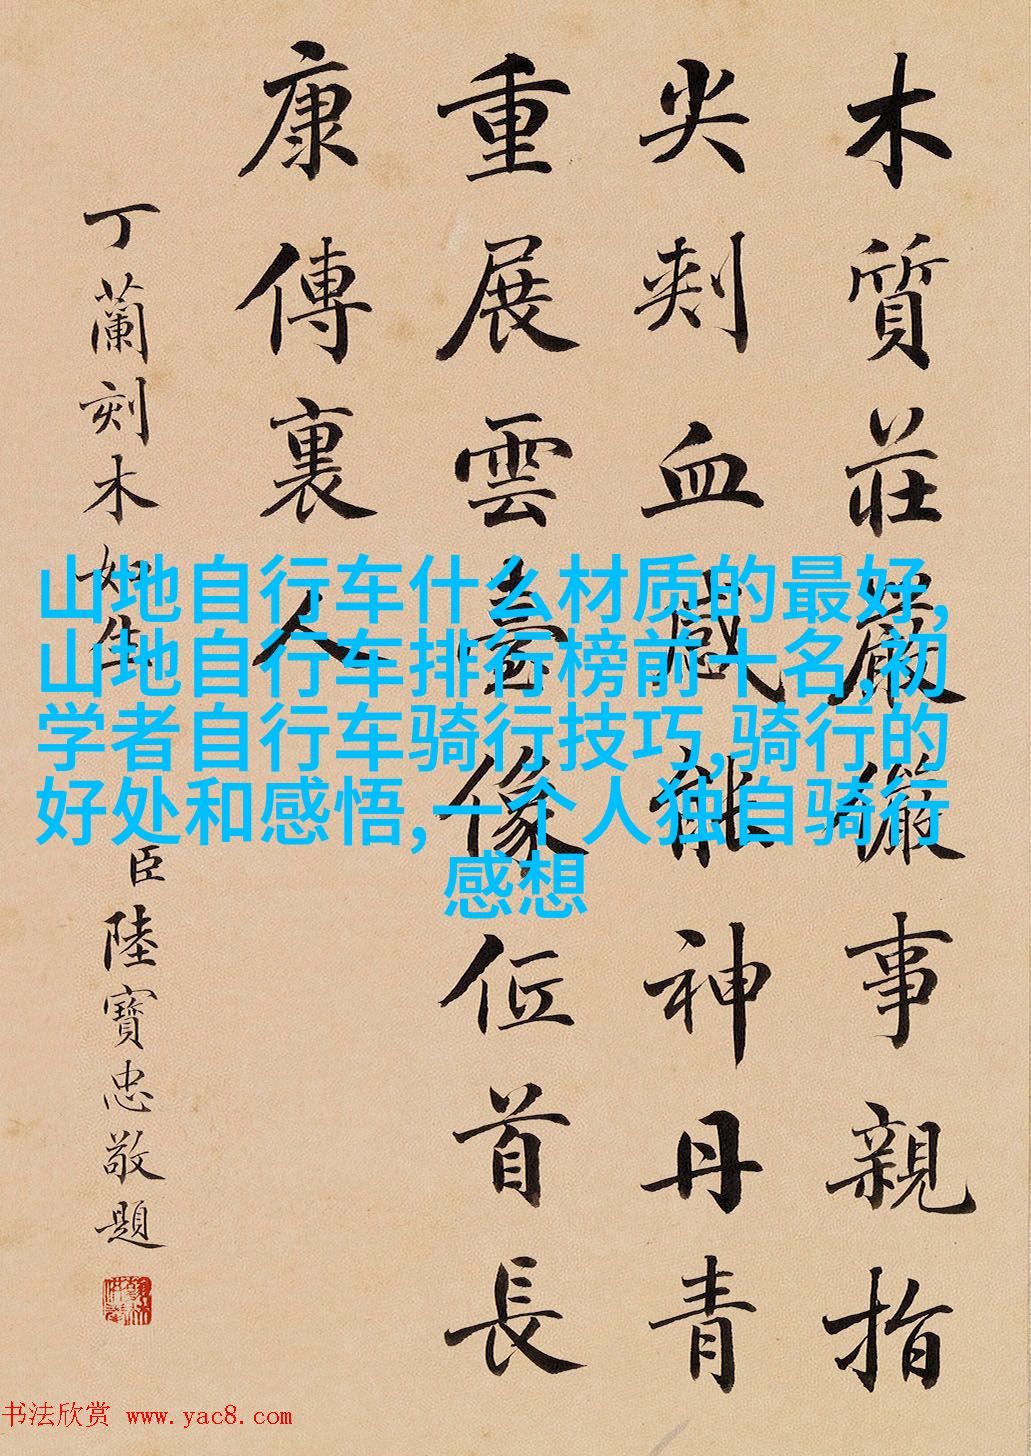 木質莊嚴儼事親指
尖刾血感能神丹青
重展雲臺像首長
康傳裏人
丁蘭刻木如生
臣陸寶忠敬題
山地自行车什么材质的最好,
山地自行车排行榜前十名,初
学者自行车骑行技巧,骑行的
好处和感悟,一个人独自骑行
感想
书法欣赏 www.yac8.com